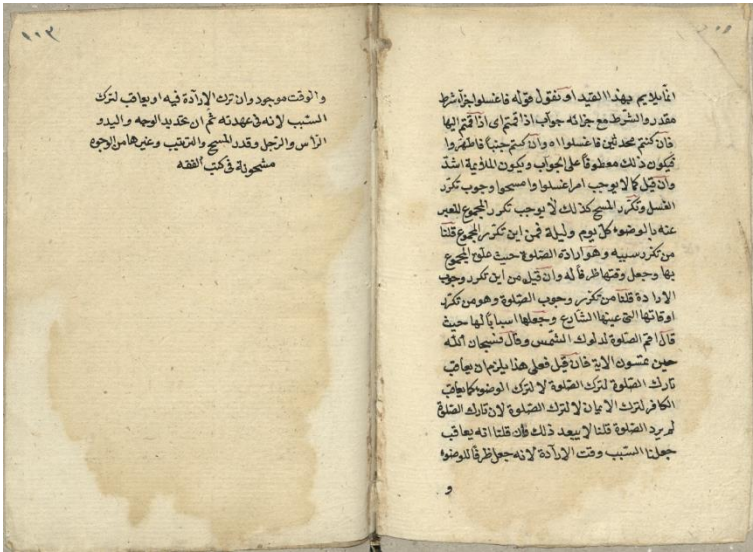 انما يلايم بهذا القيد او نقول قوله فاغسلوا جزاء شرط
مقدر والشرط مع جزائه جواب اذا قمتم اى اذا قمتم اليها
فان كنتم محدثين فاغسلوا اه وان كنتم جنبا فاطهروا
فيكون ذلك معطوفا على الجواب ويكون الملايمة اشد
وان قيل كما لا يوجب امر اغسلوا وامسحوا وجوب تكرر
الغسل وتكرر المسح كذلك لا يوجب تكرر المجموع المعبر
عنه بالوضوء كل يوم وليلة فمن اين تكرر المجموع قلنا
من تكرر سببه وهو ارادة الصلوة حيث المجموع
بها وجعل وقتها ظرفا له وان قيل من اين تكرر وجوب
الارادة قلنا من تكرر وجوب الصلوة وهو من تكرر
اوقاتها التى عينها الشارع وجعلها اسبابا لها حيث
قال اقم الصلوة لدلوك الشمس وقال فسبحان الله
حين تمسون الاية فان قيل فعلى هذا يلزم ان يعاقب
تارك الصلوة لترك الصلوة لا لترك الوضوء كما يعاقب
الكافر لترك الايمان لا لترك الصلوة لان تارك الصلوة
لم يرد الصلوة قلنا لا يبعد ذلك فان قلنا انه يعاقب
جعلنا السبب وقت الارادة لانه جعل ظرفا للوضوء
و
١١٣
والوقت موجود وان ترك الارادة فيه او يعاقب لترك
السبب لانه فى عهدته ثم ان تحديد الوجه واليد و
الرأس والرجل وقدر المسح والترتيب وغيرها من الوجوه
مشحونة فى كتب الفقه